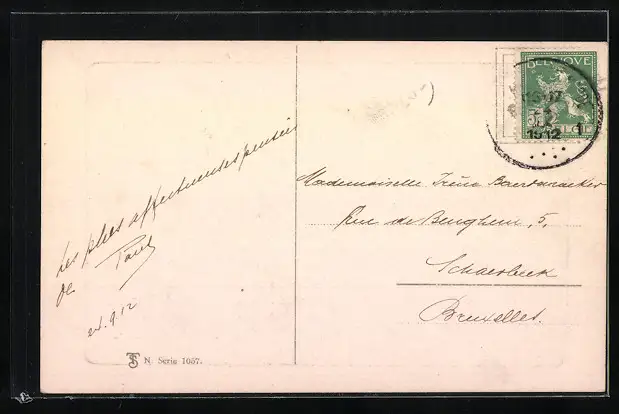 Les plus affectueuses pensées
de Paul
21.9.12
TS N. Serie 1057.
BELGIQUE
1912
BELGIË
Mademoiselle Irène
Rue de Beughem, 5,
Schaerbeek
Bruxelles.